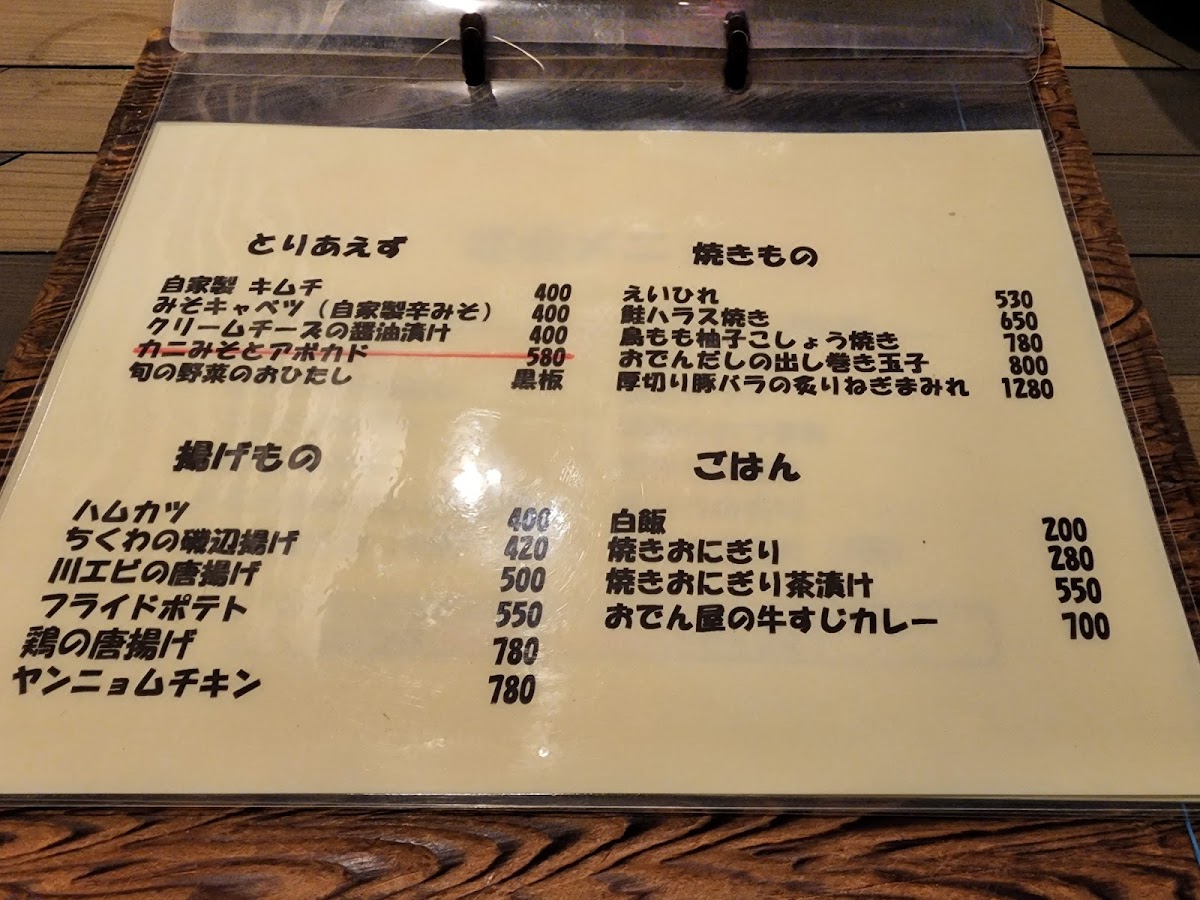 とりあえず
自家製 キムチ 400
みそキャベツ（自家製辛みそ） 400
クリームチーズの醤油漬け 400
カニみそとアボカド 580
旬の野菜のおひたし 黒板
焼きもの
えいひれ 530
鮭ハラス焼き 650
鳥もも柚子こしょう焼き 780
おでんだしの出し巻き玉子 800
厚切り豚バラの炙りねぎまみれ 1280
揚げもの
ハムカツ 400
ちくわの磯辺揚げ 420
川エビの唐揚げ 500
フライドポテト 550
鶏の唐揚げ 780
ヤンニョムチキン 780
ごはん
白飯 200
焼きおにぎり 280
焼きおにぎり茶漬け 550
おでん屋の牛すじカレー 700